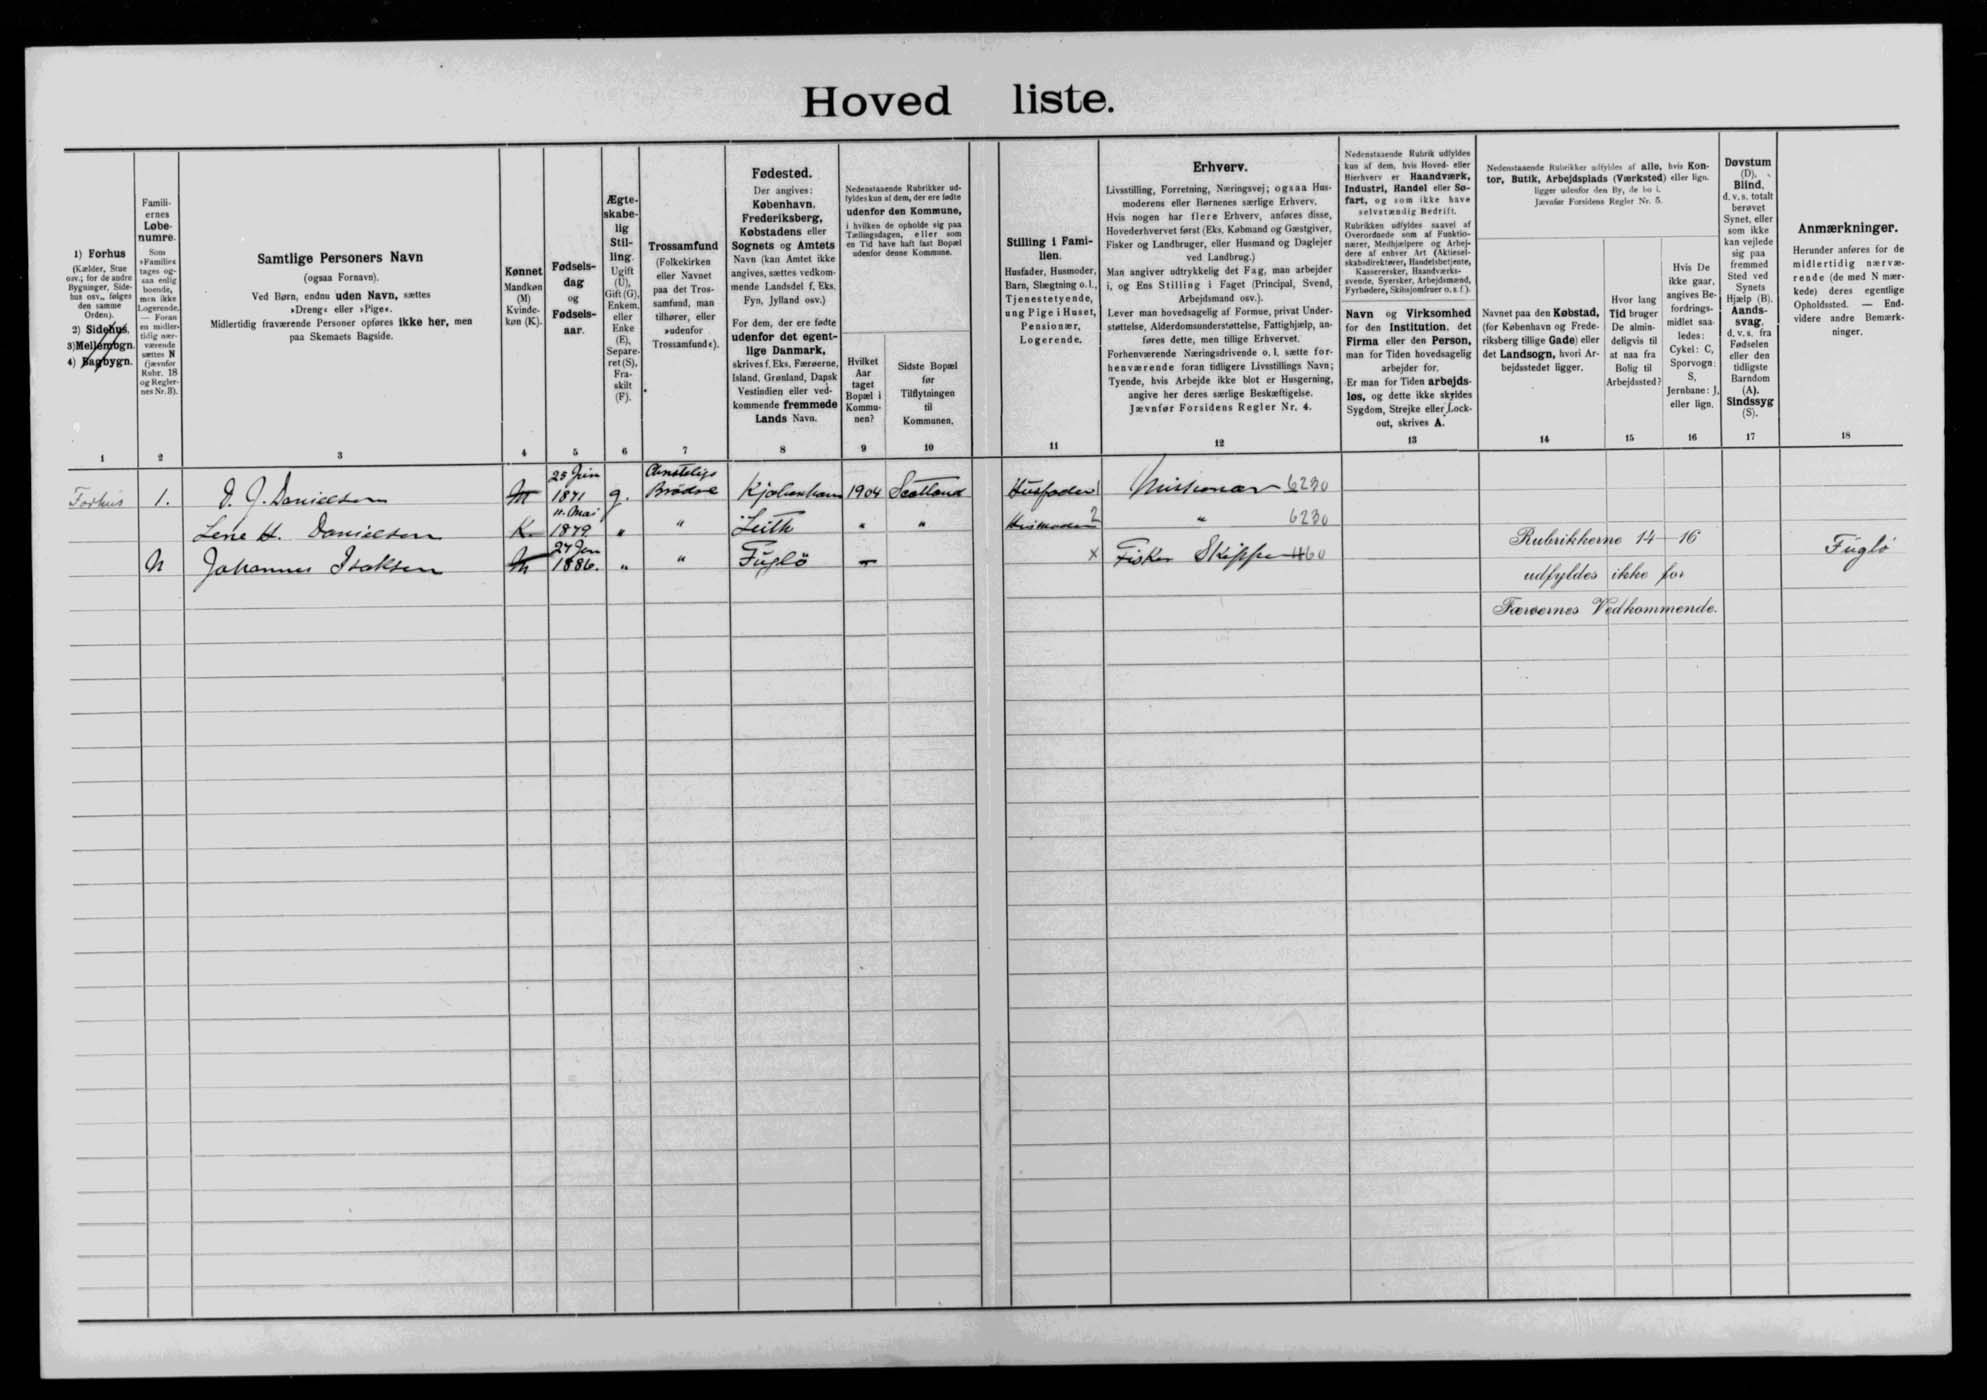 Hoved liste.
1) Forhus
(Kælder, Stue
osv.; for de andre
Bygninger, Side-
hus osv., følges
den samme
Orden).
2) Sidehus,
3) Mellembygn.
4) Bagbygn.
1
Famili-
ernes
Løbe-
numre.
Som
»Familie«
tages og-
saa enlig
boende,
men ikke
Logerende.
— Foran
en midler-
tidig nær-
værende
sættes N
(jævnfør
Rubr. 18
og Regler-
nes Nr. 3).
2
Samtlige Personers Navn
(ogsaa Fornavn).
Ved Børn, endnu uden Navn, sættes
»Dreng« eller »Pige«.
Midlertidig fraværende Personer opføres ikke her, men
paa Skemaets Bagside.
3
Kønnet
Mandkøn
(M)
Kvinde-
køn (K).
4
Fødsels-
dag
og
Fødsels-
aar.
5
Ægte-
skabe-
lig
Stil-
ling.
Ugift
(U),
Gift (G),
Enkem.
eller
Enke
(E),
Separe-
ret (S),
Fra-
skilt
(F).
6
Trossamfund
(Folkekirken
eller Navnet
paa det Tros-
samfund, man
tilhører, eller
»udenfor
Trossamfund«).
7
Fødested.
Der angives:
København,
Frederiksberg,
Købstadens eller
Sognets og Amtets
Navn (kan Amtet ikke
angives, sættes vedkom-
mende Landsdel f. Eks.
Fyn, Jylland osv.)
For dem, der ere fødte
udenfor det egent-
lige Danmark,
skrives f. Eks. Færøerne,
Island, Grønland, Dapsk
Vestindien eller ved-
kommende fremmede
Lands Navn.
8
Nedenstaaende Rubrikker ud-
fyldes kun af dem, der ere fødte
udenfor den Kommune,
i hvilken de opholde sig paa
Tællingsdagen, eller som
en Tid have haft fast Bopæl
udenfor denne Kommune.
Hvilket
Aar
taget
Bopæl i
Kommu-
nen?
9
Sidste Bopæl
før
Tilflytningen
til
Kommunen.
10
Stilling i Fami-
lien.
Husfader, Husmoder,
Barn, Slægtning o.l.,
Tjenestetyende,
ung Pige i Huset,
Pensionær,
Logerende.
11
Erhverv.
Livsstilling, Forretning, Næringsvej; ogsaa Hus-
moderens eller Børnenes særlige Erhverv.
Hvis nogen har flere Erhverv, anføres disse,
Hovederhvervet først (Eks. Købmand og Gæstgiver,
Fisker og Landbruger, eller Husmand og Daglejer
ved Landbrug.)
Man angiver udtrykkelig det Fag, man arbejder
i, og Ens Stilling i Faget (Principal, Svend,
Arbejdsmand osv.).
Lever man hovedsagelig af Formue, privat Under-
støttelse, Alderdomsunderstøttelse, Fattighjælp, an-
føres dette, men tillige Erhvervet.
Forhenværende Næringsdrivende o. l. sætte for-
henværende foran tidligere Livsstillings Navn;
Tyende, hvis Arbejde ikke blot er Husgerning,
angive her deres særlige Beskæftigelse.
Jævnfør Forsidens Regler Nr. 4.
12
Nedenstaaende Rubrik udfyldes
kun af dem, hvis Hoved- eller
Bierhverv er Haandværk,
Industri, Handel eller Sø-
fart, og som ikke have
selvstændig Bedrift.
Rubrikken udfyldes saavel af
Overordnede som af Funktio-
nærer, Medhjælpere og Arbej-
dere af enhver Art (Aktiesel-
skabsdirektører, Handelsbetjente,
Kasserersker, Haandværks-
svende, Syersker, Arbejdsmænd,
Fyrbødere, Skibsjomfruer o. s. f.).
Navn og Virksomhed
for den Institution, det
Firma eller den Person,
man for Tiden hovedsagelig
arbejder for.
Er man for Tiden arbejds-
løs, og dette ikke skyldes
Sygdom, Strejke eller Lock-
out, skrives A.
13
Nedenstaaende Rubrikker udfyldes af alle, hvis Kon-
tor, Butik, Arbejdsplads (Værksted) eller lign.
ligger udenfor den By, de bo i.
Jævnfør Forsidens Regler Nr. 5.
Navnet paa den Købstad,
(for København og Frede-
riksberg tillige Gade) eller
det Landsogn, hvori Ar-
bejdsstedet ligger.
14
Hvor lang
Tid bruger
De almin-
deligvis til
at naa fra
Bolig til
Arbejdssted?
15
Hvis De
ikke gaar,
angives Be-
fordrings-
midlet saa-
ledes:
Cykel: C,
Sporvogn:
S,
Jernbane: J,
eller lign.
16
Døvstum
(D).
Blind,
d. v. s. totalt
berøvet
Synet, eller
som ikke
kan vejlede
sig paa
fremmed
Sted ved
Synets
Hjælp (B).
Aands-
svag,
d. v. s. fra
Fødselen
eller den
tidligste
Barndom
(A).
Sindssyg
(S).
17
Anmærkninger.
Herunder anføres for de
midlertidig nærvæ-
rende (de med N mær-
kede) deres egentlige
Opholdssted. — End-
videre andre Bemærk-
ninger.
18
Forhus 1. D. J. Danielsen M 25 Juin 1871 g. Christelige Brödre Kjøbenhavn 1904 Scotland Husfader 1 Missionær 6230
Lene H. Danielsen K 11. Mai 1879 " " Leith " " Husmoder 2 " 6230
N Johannes Isaksen M 27 Jan 1886. " " Fuglö — x Fisker Skipper 1160 Fuglö
Rubrikkerne 14-16
udfyldes ikke for
Færøernes Vedkommende.